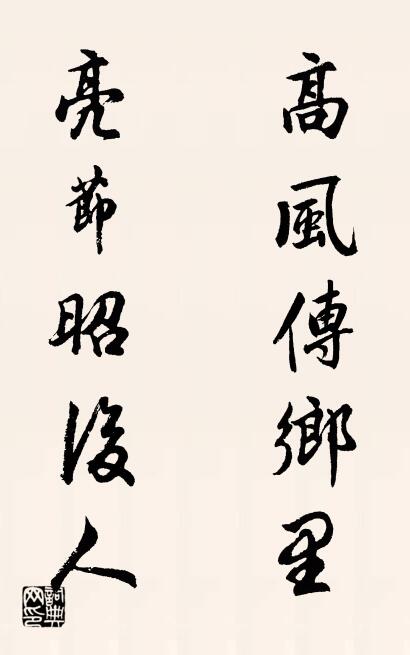 高風傳鄉里
亮節昭後人